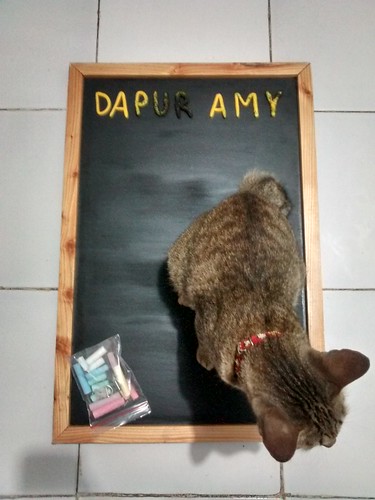 DAPUR AMY